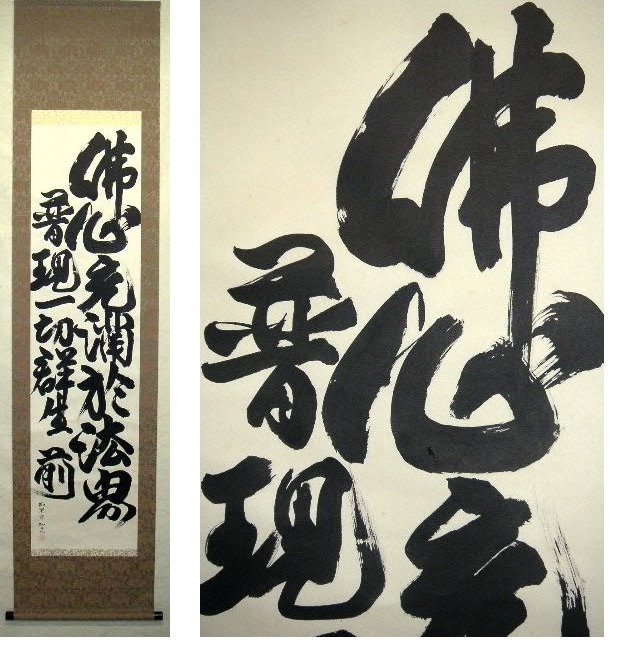 佛心充満於法界
普現一切群生前
佛心充
普現